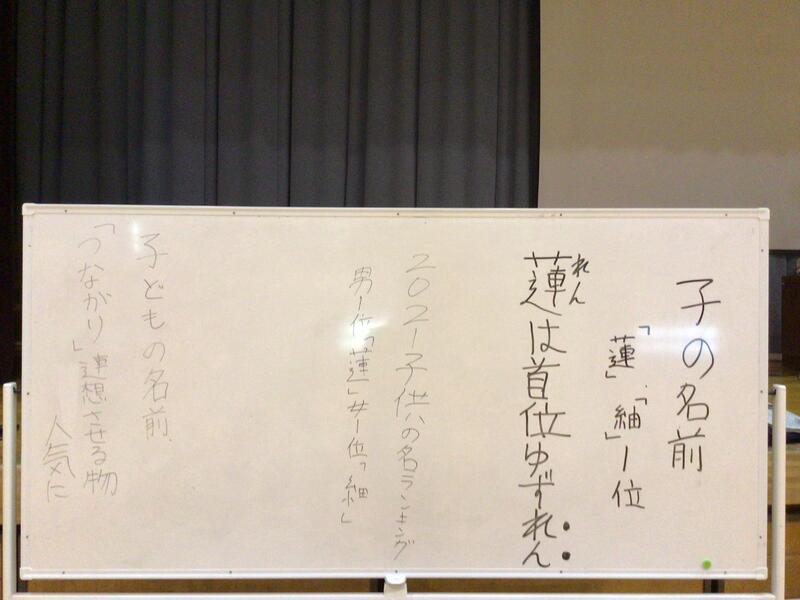 子の名前
「蓮」「紬」1位
蓮は首位ゆずれん
れん
2021子供の名ランキング
男1位「蓮」女1位「紬」
子どもの名前
「つながり」連想させる物
人気に